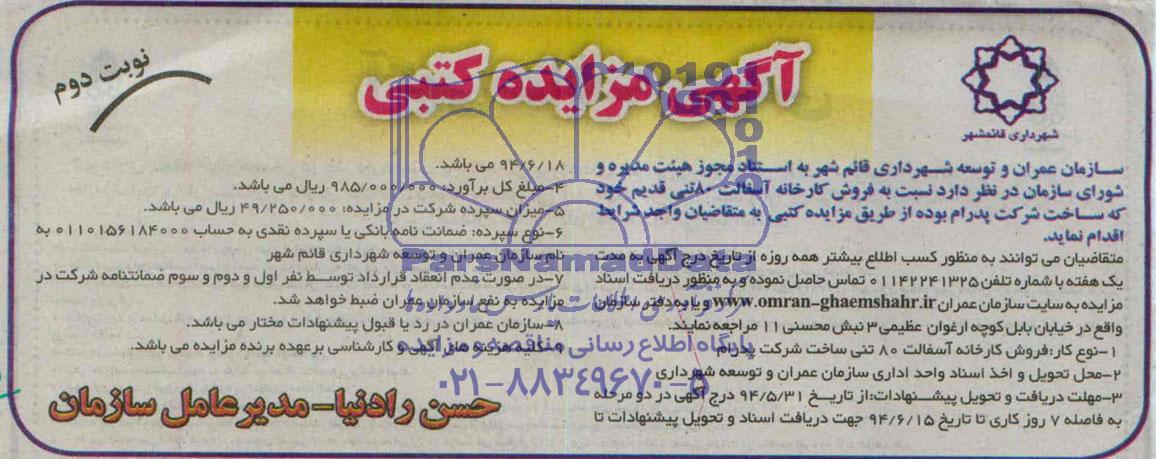 آگهی مزایده کتبی
نوبت دوم
شهرداری قائمشهر
سازمان عمران و توسعه شهرداری قائم شهر به استناد مجوز هیئت مدیره و
شورای سازمان در نظر دارد نسبت به فروش کارخانه آسفالت ۸۰تنی قدیم خود
که ساخت شرکت پدرام بوده از طریق مزایده کتبی به متقاضیان واجد شرایط
اقدام نماید.
متقاضیان می توانند به منظور کسب اطلاع بیشتر همه روزه از تاریخ درج آگهی به مدت
یک هفته با شماره تلفن ۰۱۱۴۲۲۴۱۳۲۵ تماس حاصل نموده و به منظور دریافت اسناد
مزایده به سایت سازمان عمران www.omran-ghaemshahr.ir و یا به دفتر سازمان
واقع در خیابان بابل کوچه ارغوان عظیمی۳ نبش محسنی۱۱ مراجعه نمایند.
۱-نوع کار:فروش کارخانه آسفالت ۸۰ تنی ساخت شرکت پدرام
۲-محل تحویل و اخذ اسناد واحد اداری سازمان عمران و توسعه شهرداری
۳-مهلت دریافت و تحویل پیشنهادات:از تاریخ ۹۴/۵/۳۱ درج آگهی در دو مرحله
به فاصله ۷ روز کاری تا تاریخ ۹۴/۶/۱۵ جهت دریافت اسناد و تحویل پیشنهادات تا
۹۴/۶/۱۸ می باشد.
۴-مبلغ کل برآورد: ۹۸۵/۰۰۰/۰۰۰ ریال می باشد.
۵-میزان سپرده شرکت در مزایده: ۴۹/۲۵۰/۰۰۰ ریال می باشد.
۶-نوع سپرده: ضمانت نامه بانکی یا سپرده نقدی به حساب ۰۱۱۰۱۵۶۱۸۴۰۰۰ به
نام سازمان عمران و توسعه شهرداری قائم شهر
۷-در صورت عدم انعقاد قرارداد توسط نفر اول و دوم و سوم ضمانتنامه شرکت در
مزایده به نفع سازمان عمران ضبط خواهد شد.
۸-سازمان عمران در رد یا قبول پیشنهادات مختار می باشد.
۹-کلیه هزینه های آگهی و کارشناسی برعهده برنده مزایده می باشد.
حسن رادنیا-مدیرعامل سازمان
ParsNamadData
پایگاه اطلاع رسانی مناقصه و مزایده
۰۲۱-۸۸۳۴۹۶۷۰-۵